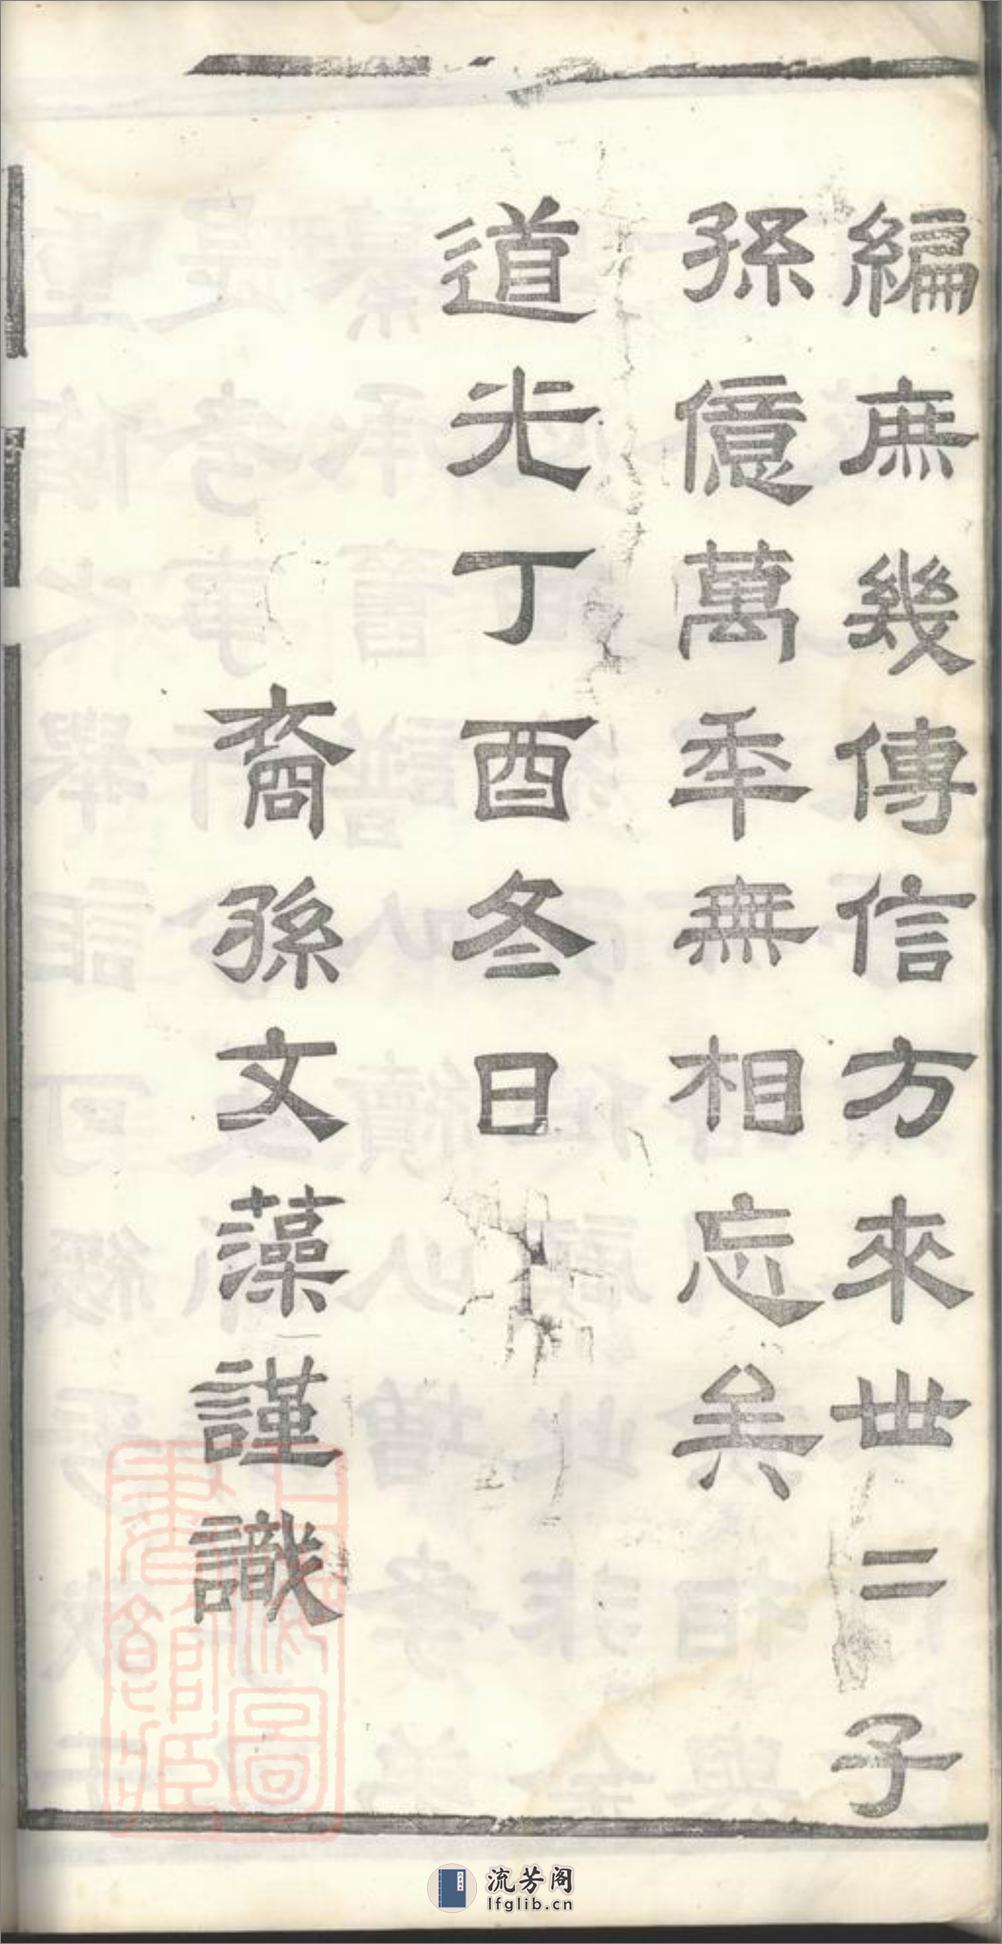 編庶幾傳信方來世二子
孫億萬年無相忘矣
道光丁酉冬日
裔孫文藻謹識
上海圖書館藏
流芳阁
lfglib.cn